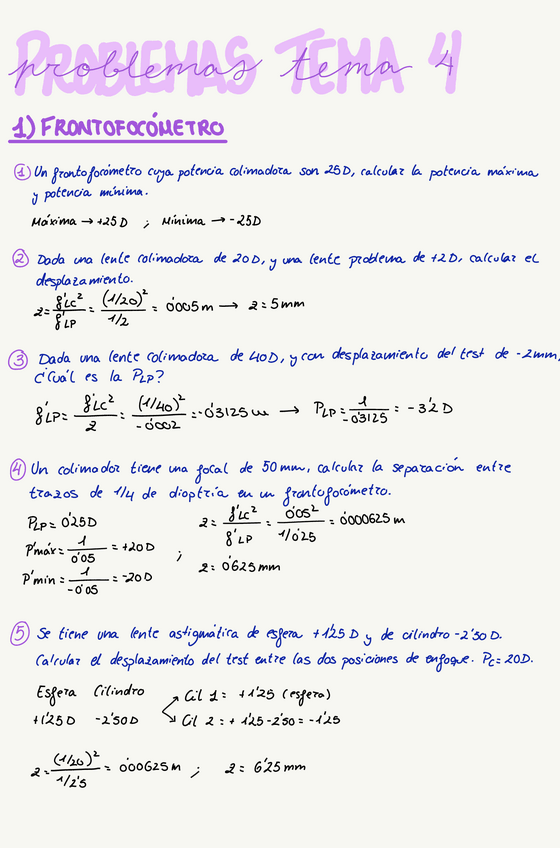 PROBLEMAS TEMA 4
problemas tema 4
1) FRONTOFOCÓMETRO
① Un frontofocómetro cuya potencia colimadora son 25D, calcular la potencia máxima
y potencia mínima.
Máxima → +25D ; Mínima → -25D
② Dada una lente colimadora de 20D, y una lente problema de +2D, calcular el
desplazamiento.
z = f'LC² / f'LP = (1/20)² / 1/2 = 0'005 m → z = 5mm
③ Dada una lente colimadora de 40D, y con desplazamiento del test de -2mm,
¿Cuál es la PLP?
f'LP = f'LC² / z = (1/40)² / -0'002 = -0'3125 m → PLP = 1 / -0'3125 = -3'2 D
④ Un colimador tiene una focal de 50mm, calcular la separación entre
trazos de 1/4 de dioptría en un frontofocómetro.
PLP = 0'25D
P'máx = 1 / 0'05 = +20D ;
P'mín = 1 / -0'05 = -20D
z = f'LC² / f'LP = 0'05² / 1/0'25 = 0'000625 m
z = 0'625mm
⑤ Se tiene una lente astigmática de esfera +1'25 D y de cilindro -2'50 D.
Calcular el desplazamiento del test entre las dos posiciones de enfoque. Pc = 20D.
Esfera Cilindro
+1'25D -2'50D
Cil 1 = +1'25 (esfera)
Cil 2 = +1'25-2'50 = -1'25
z = (1/20)² / 1/2'5 = 0'00625 m ; z = 6'25 mm